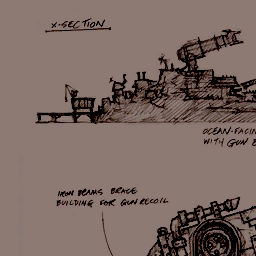 X-SECTION
OCEAN-FACIN
WITH GUN E
IRON BEAMS BRACE
BUILDING FOR GUN RECOIL